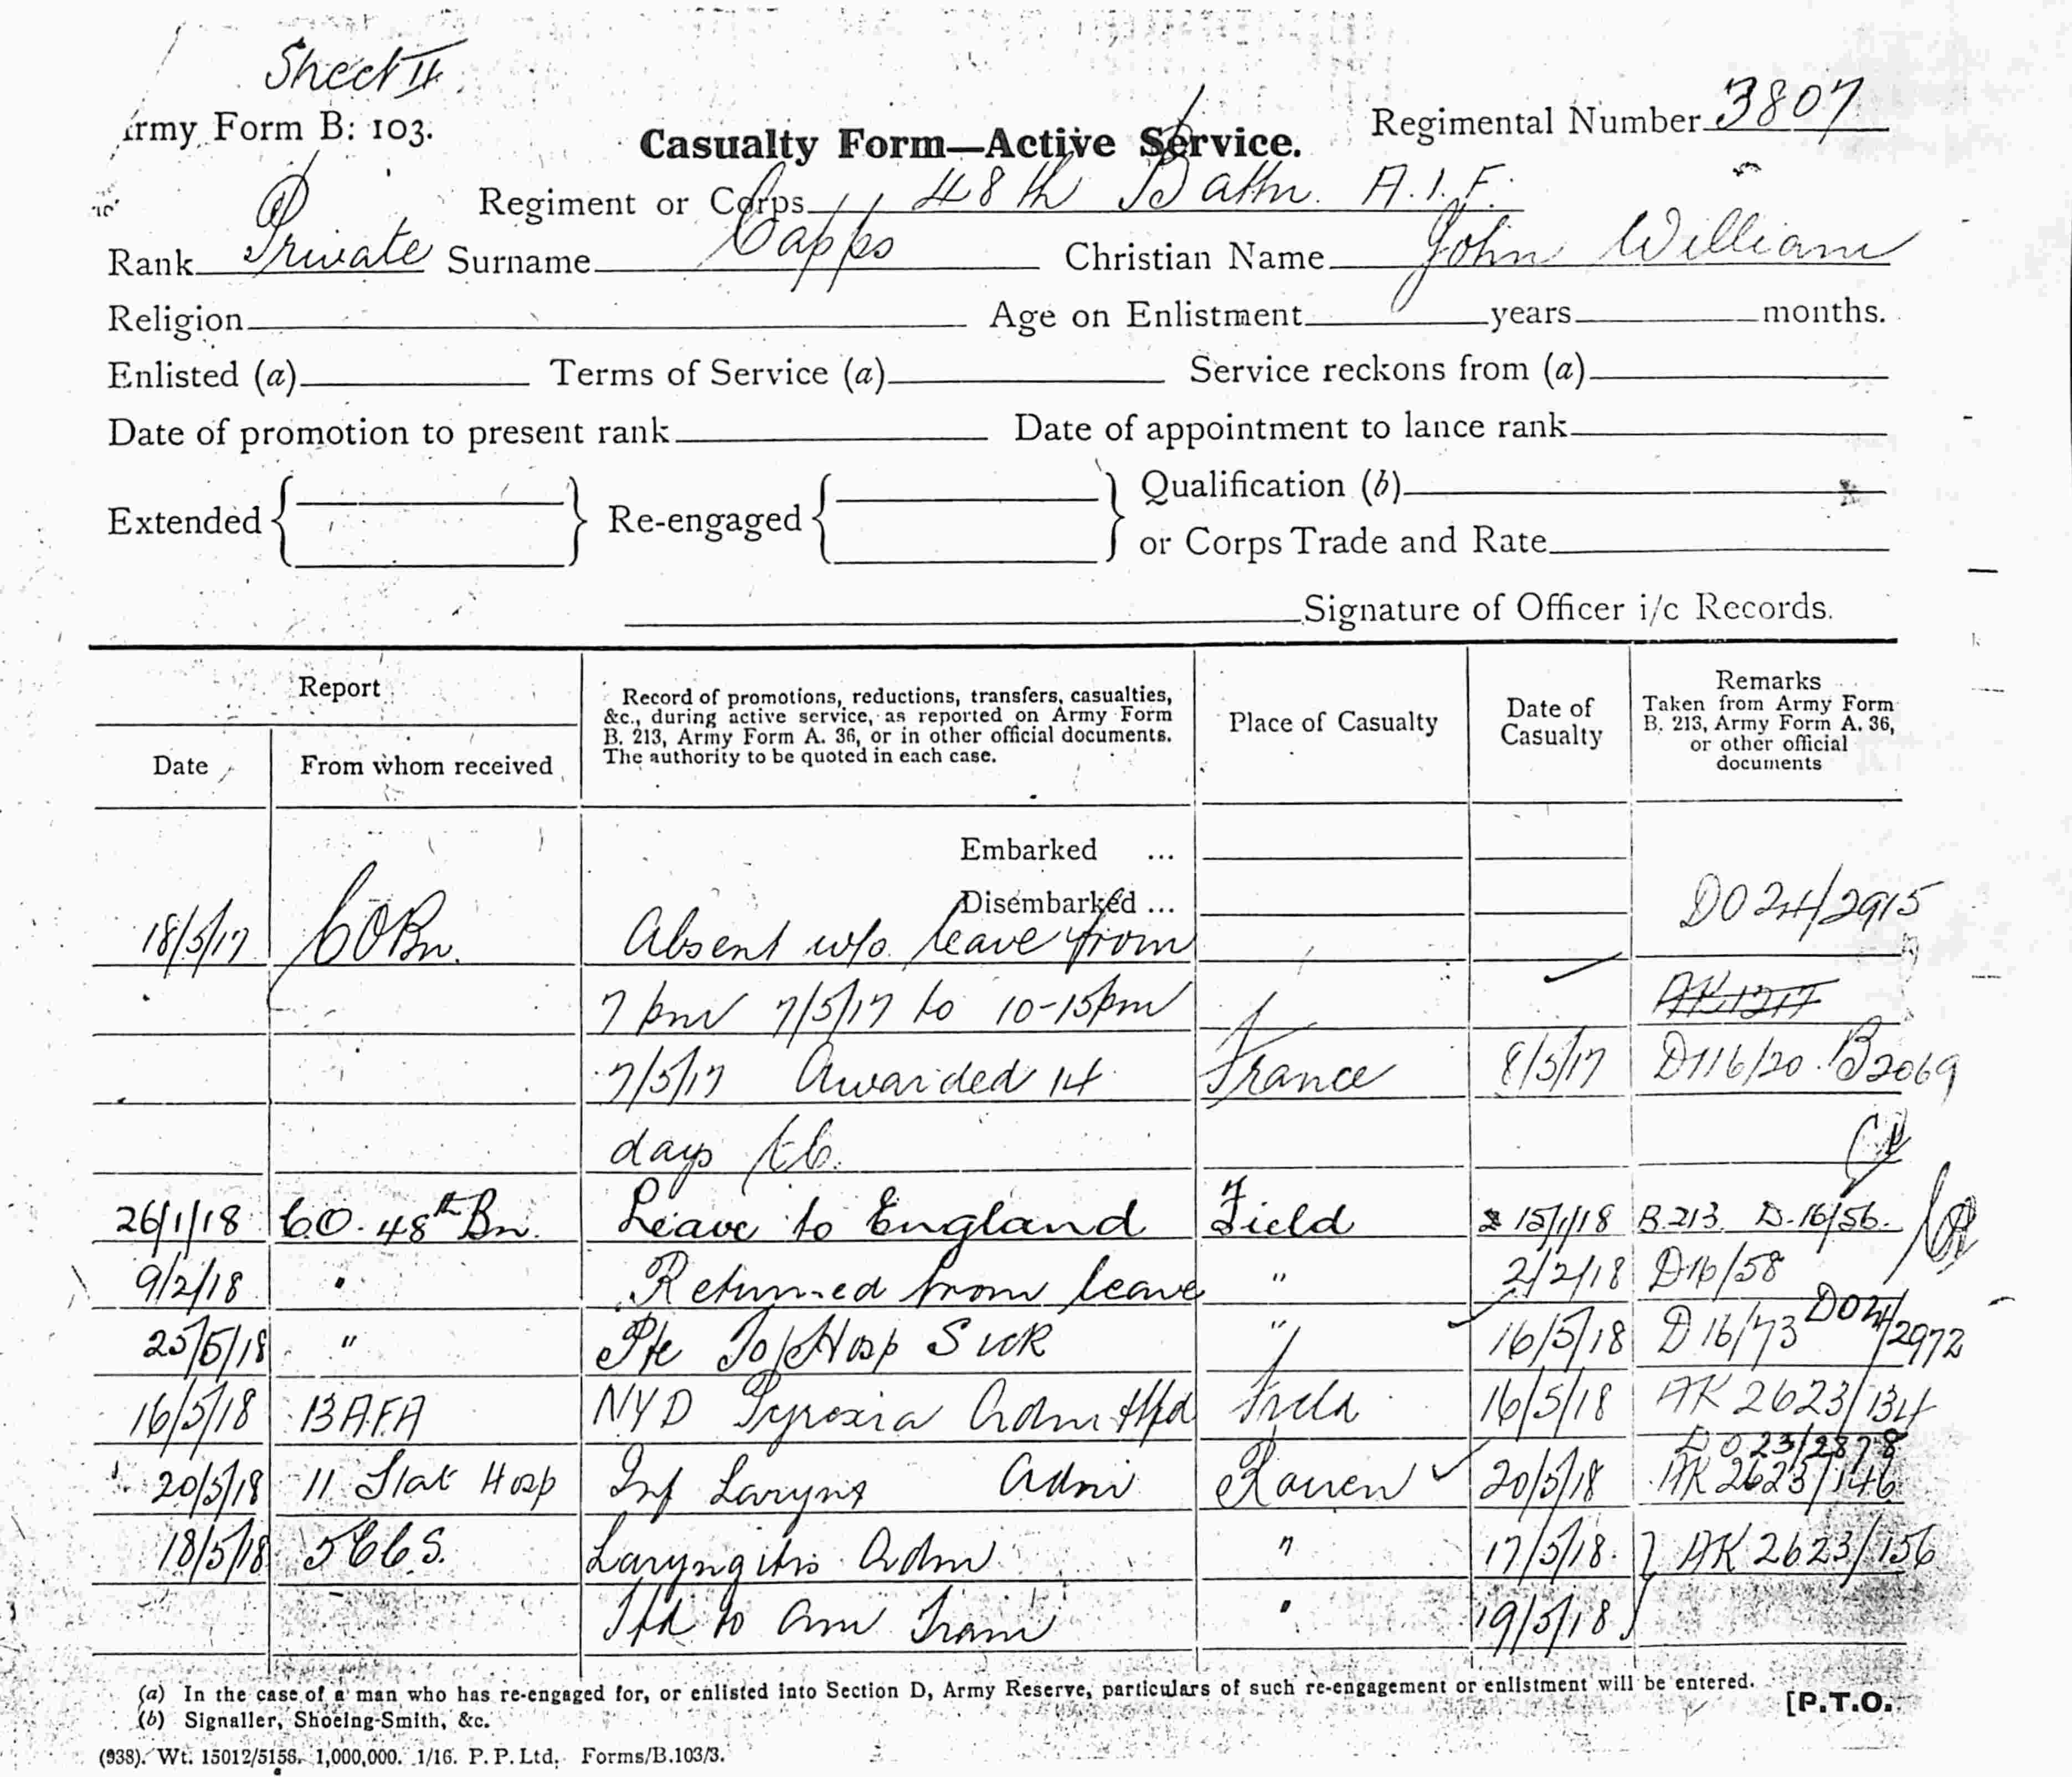 Sheet II
Army Form B: 103.
Casualty Form—Active Service.
Regimental Number 3807
Regiment or Corps 48th Battn. A.I.F.
Rank Private Surname Capps Christian Name John William
Religion Age on Enlistment years months.
Enlisted (a) Terms of Service (a) Service reckons from (a)
Date of promotion to present rank Date of appointment to lance rank
Extended Re-engaged Qualification (b)
or Corps Trade and Rate
Signature of Officer i/c Records.
Report
Date From whom received
Record of promotions, reductions, transfers, casualties,
&c., during active service, as reported on Army Form
B. 213, Army Form A. 36, or in other official documents.
The authority to be quoted in each case.
Place of Casualty
Date of
Casualty
Remarks
Taken from Army Form
B. 213, Army Form A. 36,
or other official
documents
Embarked ...
Disembarked ...
DO 24/2915
18/5/17 CO Bn. Absent w/o leave from
7 pm 7/5/17 to 10-15pm
7/5/17 Awarded 14 France 8/5/17 D116/20 B2069
days CC.
26/1/18 CO. 48th Bn. Leave to England Field 15/1/18 B.213 D.16/56.
9/2/18 " Returned from leave " 2/2/18 D16/58
25/5/18 " Pte To Hosp Sick " 16/5/18 D16/73 DO24/2972
16/5/18 13 A.F.A NYD Pyrexia Admitted Field 16/5/18 AK 2623/134
DO 23/2878
20/5/18 11 Stat Hosp Inf Larynx Adm Rouen 20/5/18 AK 2623/146
18/5/18 5 CCS. Laryngitis Adm " 17/5/18. } AK 2623/156
Tfd to Am Train " 19/5/18
(a) In the case of a man who has re-engaged for, or enlisted into Section D, Army Reserve, particulars of such re-engagement or enlistment will be entered.
(b) Signaller, Shoeing-Smith, &c.
[P.T.O.
(938). Wt. 15012/5158. 1,000,000. 1/16. P. P. Ltd. Forms/B.103/3.